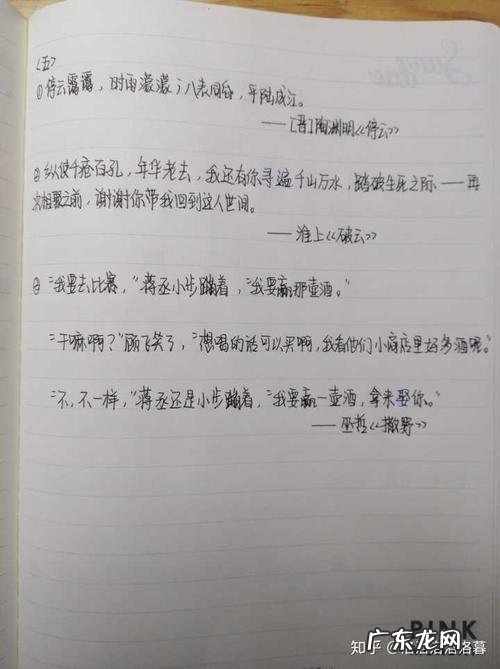 〈五〉
①停云霭霭，时雨濛濛；八表同昏，平陆成江。
——[晋]陶渊明《停云》
②纵使千疮百孔，年华老去，我还有你寻遍千山万水，踏破生死之际——再
次相聚之前，谢谢你带我回到这人世间。
——淮上《破云》
③"我要去比赛，"蒋丞小步蹦着，"我要赢那壶酒。"
"干嘛啊？"顾飞笑了，"想喝的话可以买啊，我看他们小商店里好多酒呢。"
"不，不一样，"蒋丞还是小步蹦着，"我要赢一壶酒，拿来娶你。"
——巫哲《撒野》
PINK
知乎
广东龙网
洛暮